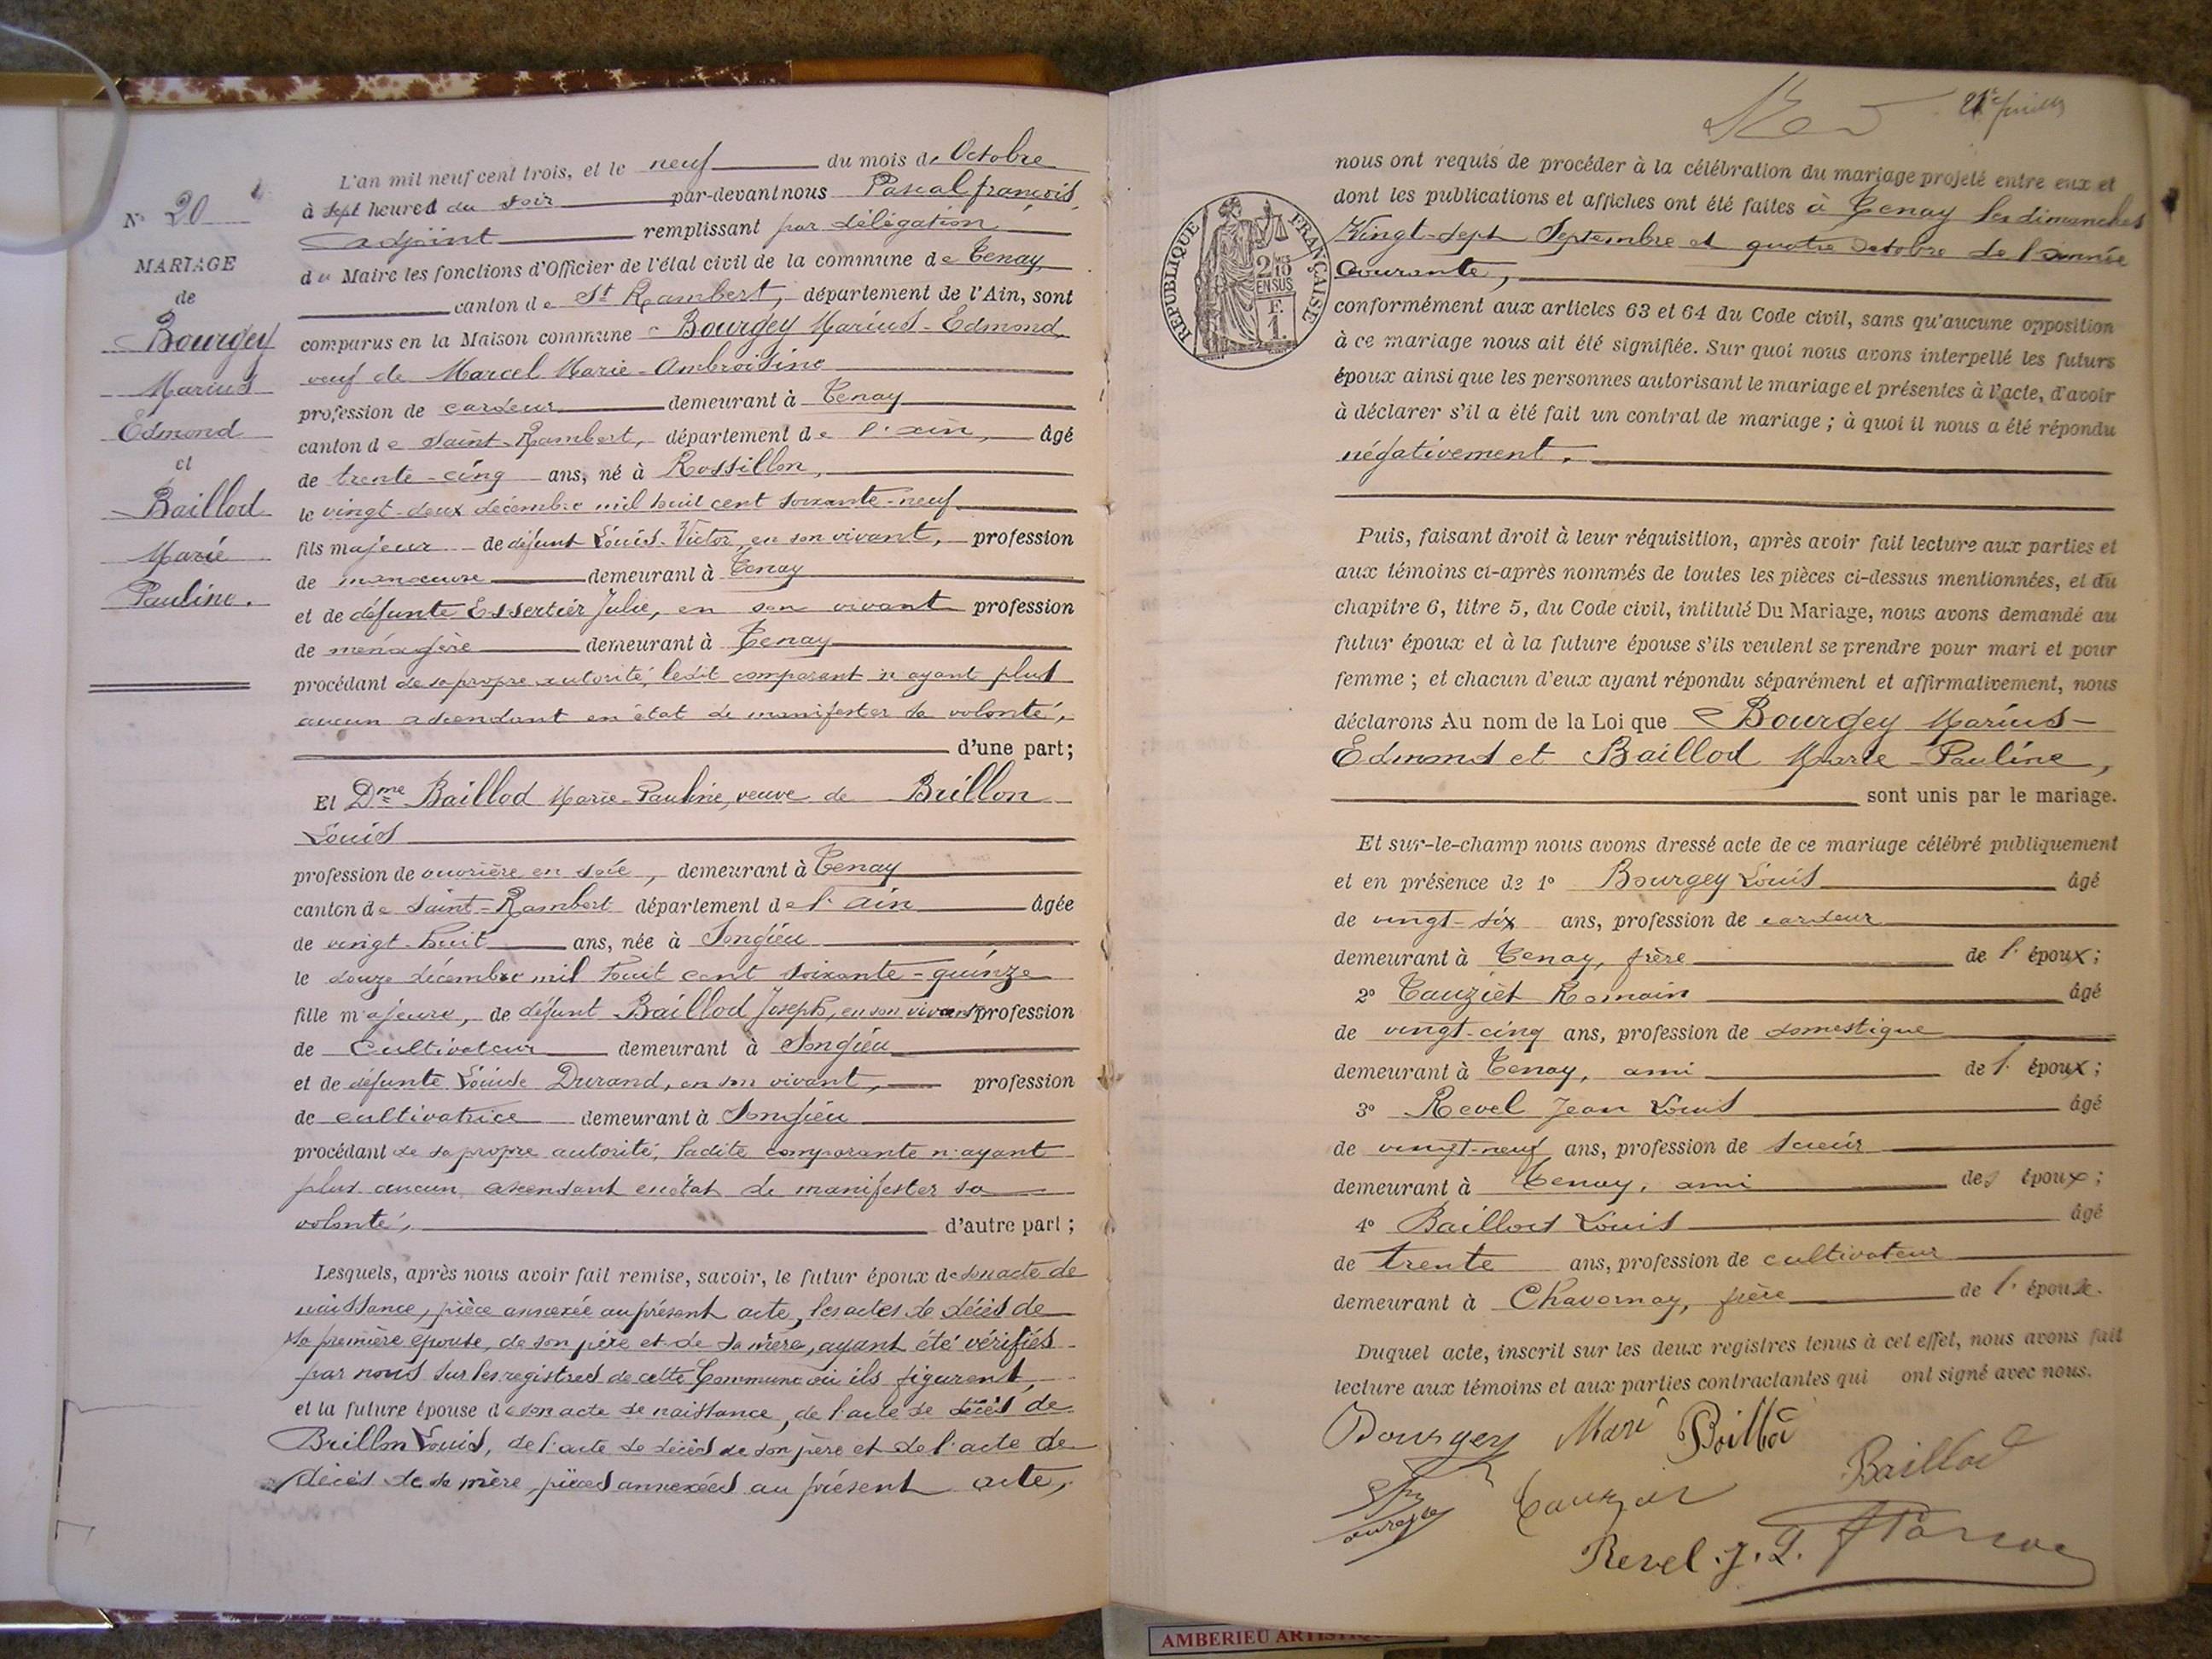 N° 20
MARIAGE
de
Bourgey
Marius
Edmond
et
Baillod
Marie
Pauline.
L'an mil neuf cent trois, et le neuf du mois de Octobre
à sept heures du soir par-devant nous Pascal françois,
adjoint remplissant par délégation
du Maire les fonctions d'Officier de l'état civil de la commune de Tenay
canton de St Rambert, département de l'Ain, sont
comparus en la Maison commune Bourgey Marius-Edmond
veuf de Marcel Marie-Ambroisine
profession de cardeur demeurant à Tenay
canton de Saint-Rambert, département de l'ain, âgé
de trente-cinq ans, né à Rossillon,
le vingt-deux décembre mil huit cent soixante-neuf
fils majeur de défunt Louis-Victor, en son vivant, profession
de manœuvre demeurant à Tenay
et de défunte Essertier Julie, en son vivant profession
de ménagère demeurant à Tenay
procédant de sa propre autorité, ledit comparant n'ayant plus
aucun ascendant en état de manifester sa volonté,
d'une part;
Et Dme Baillod Marie-Pauline, veuve de Brillon
Louis
profession de ouvrière en soie, demeurant à Tenay
canton de Saint-Rambert département de l'ain âgée
de vingt-huit ans, née à Songieu
le douze décembre mil huit cent soixante-quinze
fille majeure, de défunt Baillod Joseph, en son vivant profession
de Cultivateur demeurant à Songieu
et de défunte Louise Durand, en son vivant, profession
de cultivatrice demeurant à Songieu
procédant de sa propre autorité, ladite comparante n'ayant
plus aucun ascendant en état de manifester sa
volonté, d'autre part;
Lesquels, après nous avoir fait remise, savoir, le futur époux de son acte de
naissance, pièce annexée au présent acte, les actes de décès de
sa première épouse, de son père et de sa mère, ayant été vérifiés
par nous sur les registres de cette Commune où ils figurent,
et la future épouse de son acte de naissance, de l'acte de décès de
Brillon Louis, de l'acte de décès de son père et de l'acte de
décès de sa mère, pièces annexées au présent acte,
21e feuillet
RÉPUBLIQUE FRANÇAISE
2 10
EN SUS
F.
1.
nous ont requis de procéder à la célébration du mariage projeté entre eux et
dont les publications et affiches ont été faites à Tenay les dimanches
Vingt-sept Septembre et quatre Octobre de l'année
courante,
conformément aux articles 63 et 64 du Code civil, sans qu'aucune opposition
à ce mariage nous ait été signifiée. Sur quoi nous avons interpellé les futurs
époux ainsi que les personnes autorisant le mariage et présentes à l'acte, d'avoir
à déclarer s'il a été fait un contrat de mariage; à quoi il nous a été répondu
négativement.
Puis, faisant droit à leur réquisition, après avoir fait lecture aux parties et
aux témoins ci-après nommés de toutes les pièces ci-dessus mentionnées, et du
chapitre 6, titre 5, du Code civil, intitulé Du Mariage, nous avons demandé au
futur époux et à la future épouse s'ils veulent se prendre pour mari et pour
femme; et chacun d'eux ayant répondu séparément et affirmativement, nous
déclarons Au nom de la Loi que Bourgey Marius-
Edmond et Baillod Marie-Pauline,
sont unis par le mariage.
Et sur-le-champ nous avons dressé acte de ce mariage célébré publiquement
et en présence de 1° Bourgey Louis âgé
de vingt-six ans, profession de cardeur
demeurant à Tenay, frère de l'époux;
2° Tauziet Romain âgé
de vingt-cinq ans, profession de domestique
demeurant à Tenay, ami de l'époux;
3° Revel Jean Louis âgé
de vingt-neuf ans, profession de scieur
demeurant à Tenay, ami des époux;
4° Baillod Louis âgé
de trente ans, profession de cultivateur
demeurant à Chavornay, frère de l'épouse.
Duquel acte, inscrit sur les deux registres tenus à cet effet, nous avons fait
lecture aux témoins et aux parties contractantes qui ont signé avec nous.
Bourgey Mari
Baillod
Revel. J. L.
AMBERIEU